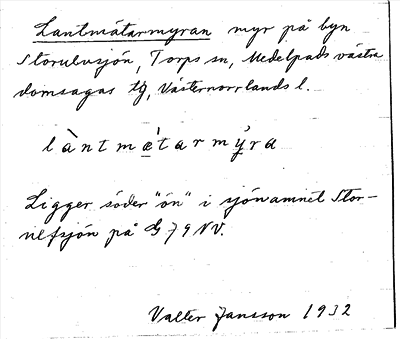 Lantmätarmyran myr på byn
Storulvsjön, Torps sn, Medelpads västra
domsagas tg, Västernorrlands l.
làntmætarmýra
Ligger söder "ön" i sjönamnet Stor-
ulfsjön på G 79 NV.
Valter Jansson 1932